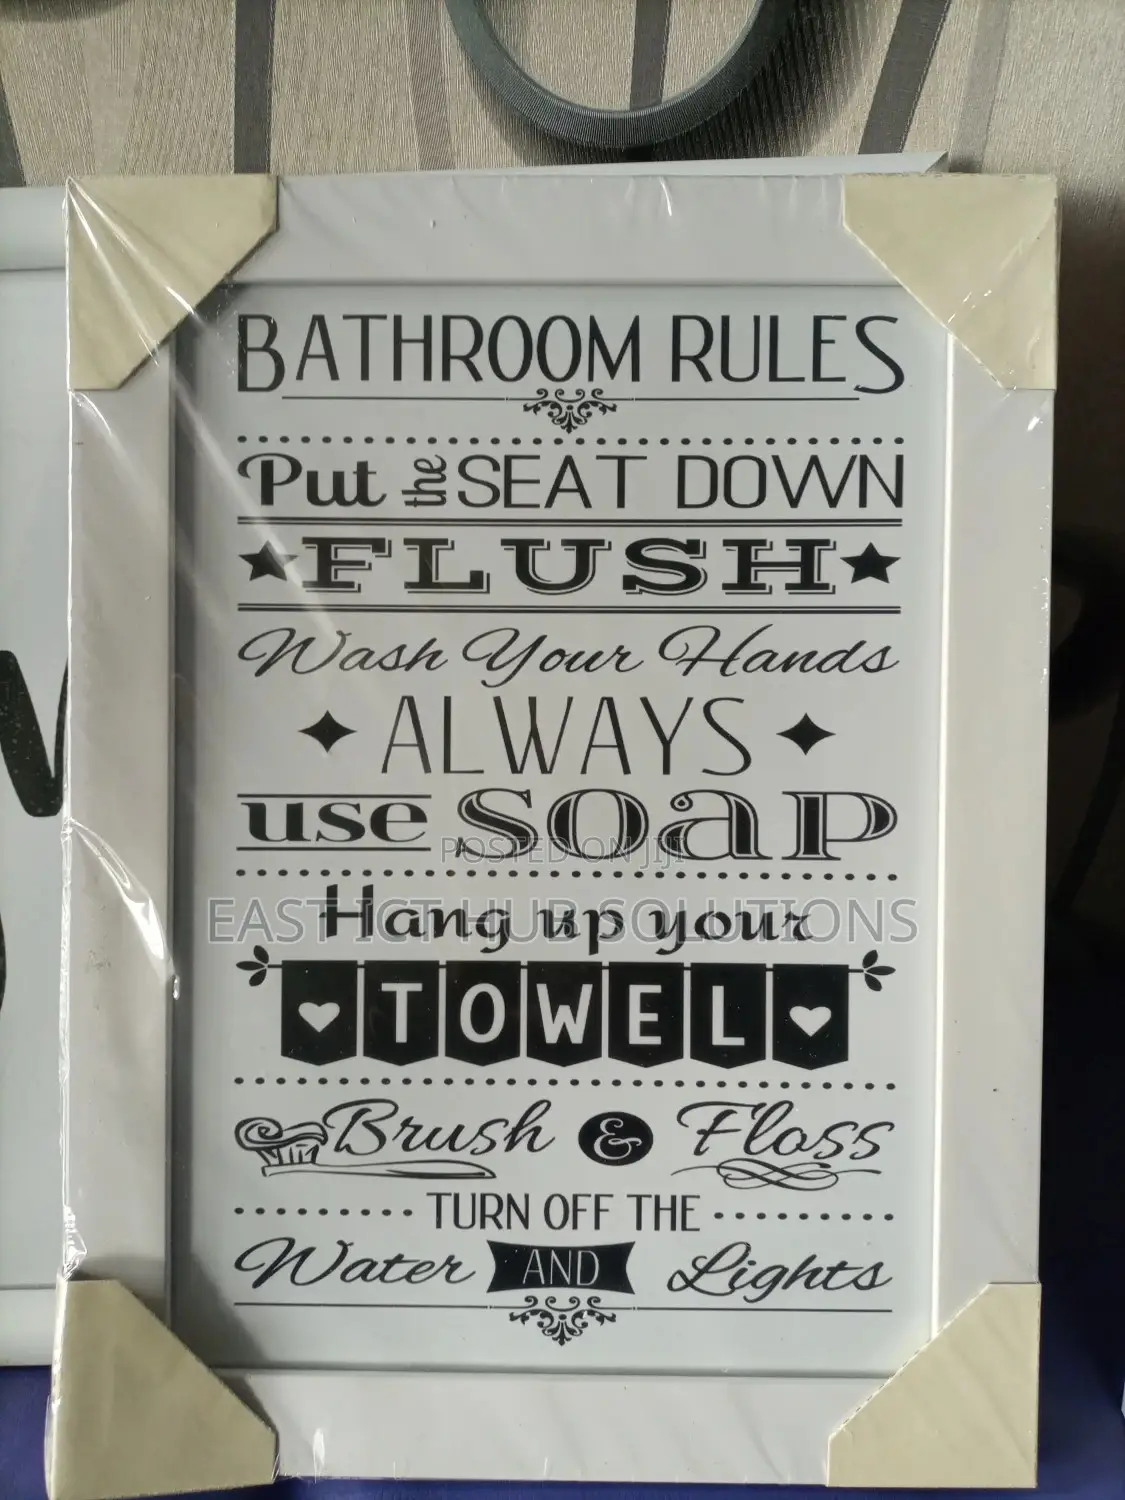 BATHROOM RULES
Put the SEAT DOWN
FLUSH
Wash Your Hands
ALWAYS
use soap
POSTED ON JIJI
Hang up your
EAST ICT HUB SOLUTIONS
TOWEL
Brush & Floss
TURN OFF THE
Water AND Lights